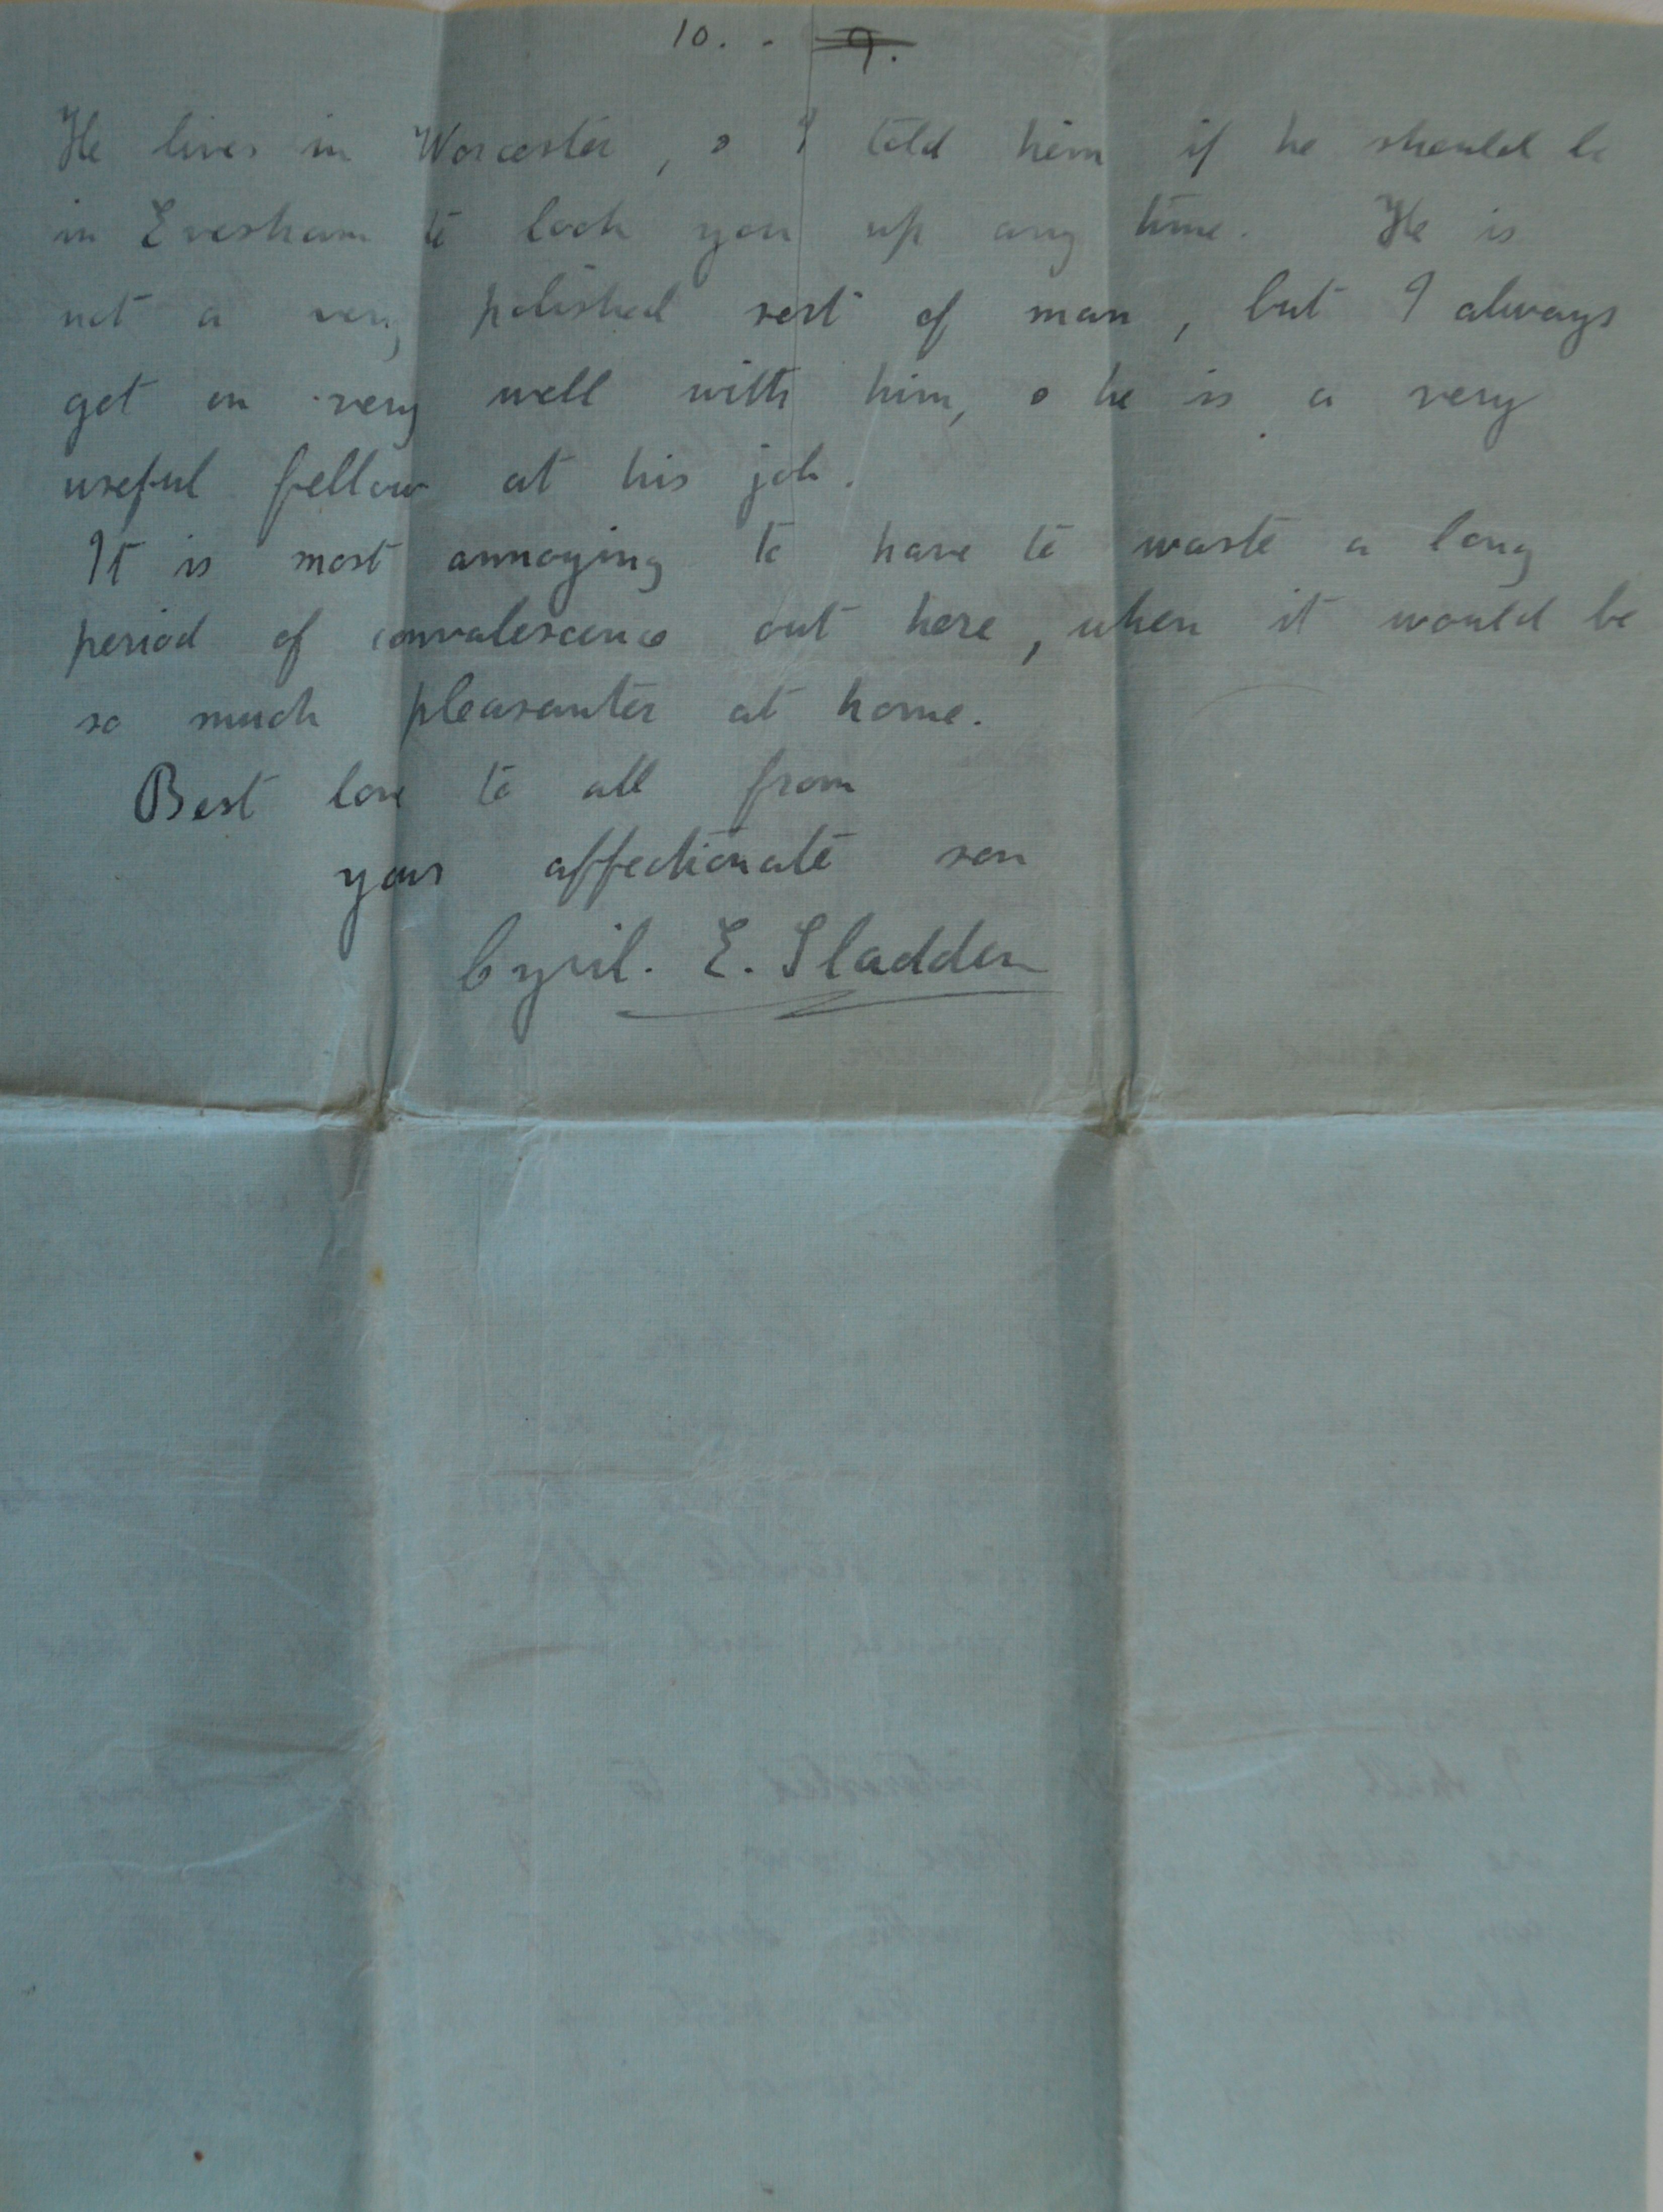 10. - ~~9.~~
He lives in Worcester, & I told him if he should be
in Evesham to look you up any time. He is
not a very polished sort of man, but I always
get on very well with him, & he is a very
useful fellow at his job.
It is most annoying to have to waste a long
period of convalescence out here, when it would be
so much pleasanter at home.
Best love to all from
your affectionate son
Cyril. E. Sladden